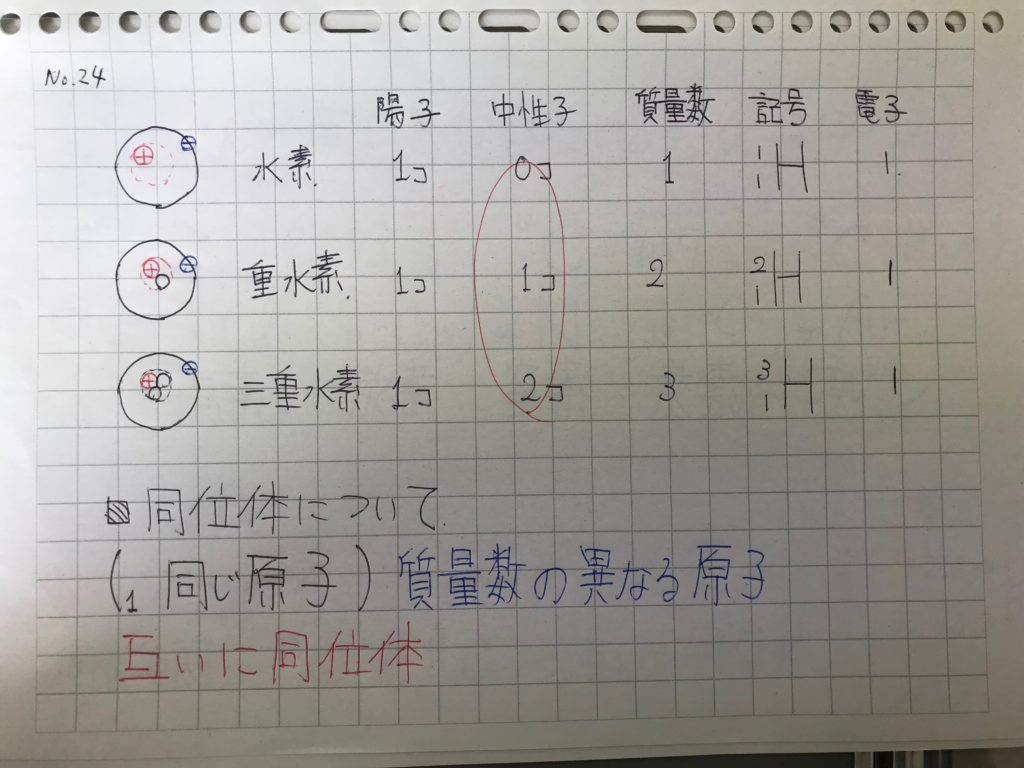 No.24
陽子 中性子 質量数 記号 電子
水素. 1コ 0コ 1 ¹₁H 1.
重水素. 1コ 1コ 2 ²₁H 1
三重水素 1コ 2コ 3 ³₁H 1
同位体について.
(1 同じ原子) 質量数の異なる原子
互いに同位体